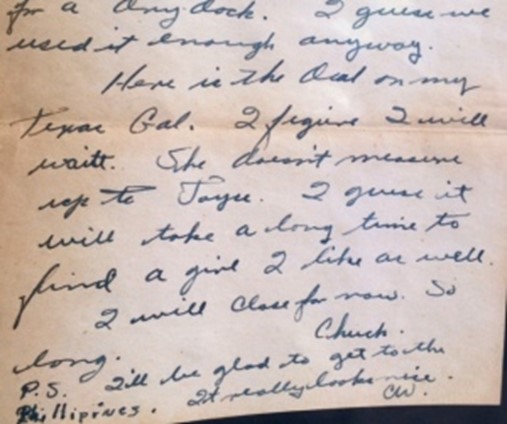 for a dry dock. I guess we
used it enough anyway.
Here is the deal on my
Texas Gal. I figure I will
waitt. She doesn't measure
up to Joyce. I guess it
will take a long time to
find a girl I like as well.
I will close for now. So
long.
Chuck.
P.S. I'll be glad to get to the
Phillipines. It really looks nice.
CW.